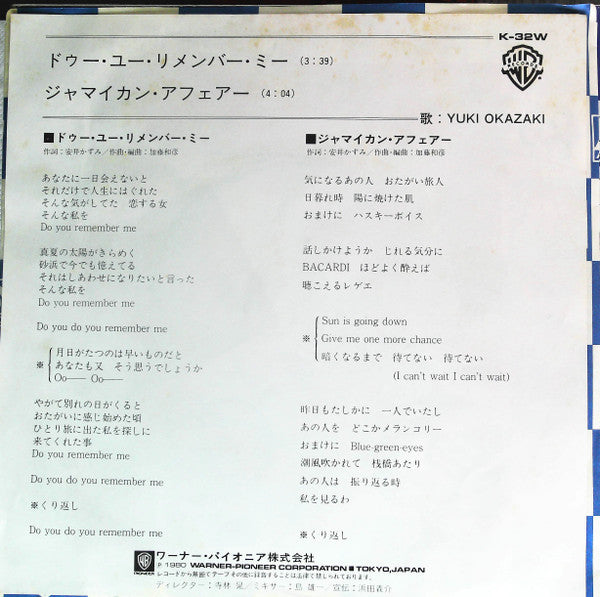 K-32W
ドゥー・ユー・リメンバー・ミー (3:39)
ジャマイカン・アフェアー (4:04)
歌：YUKI OKAZAKI
■ドゥー・ユー・リメンバー・ミー
作詞：安井かずみ／作曲・編曲：加藤和彦
あなたに一日会えないと
それだけで人生にはぐれた
そんな気がしてた　恋する女
そんな私を
Do you remember me
真夏の太陽がきらめく
砂浜で今でも憶えてる
それはしあわせになりたいと言った
そんな私を
Do you remember me
Do you do you remember me
※ 月日がたつのは早いものだと
あなたも又　そう思うでしょうか
Oo── Oo──
やがて別れの日がくると
おたがいに感じ始めた頃
ひとり旅に出た私を探しに
来てくれた事
Do you remember me
Do you do you remember me
※くり返し
Do you do you remember me
■ジャマイカン・アフェアー
作詞：安井かずみ／作曲・編曲：加藤和彦
気になるあの人　おたがい旅人
日暮れ時　陽に焼けた肌
おまけに　ハスキーボイス
話しかけようか　じれる気分に
BACARDI　ほどよく酔えば
聴こえるレゲエ
Sun is going down
※ Give me one more chance
暗くなるまで　待てない　待てない
(I can't wait I can't wait)
昨日もたしかに　一人でいたし
あの人を　どこかメランコリー
おまけに　Blue-green-eyes
潮風吹かれて　桟橋あたり
あの人は　振り返る時
私を見るわ
※くり返し
PIONEER
ワーナー・パイオニア株式会社
℗ 1980 WARNER-PIONEER CORPORATION ■ TOKYO, JAPAN
レコードから無断でテープその他に録音することは法律で禁じられております。
ディレクター：寺林 晃／ミキサー：島 雄一／宣伝：浜田義介